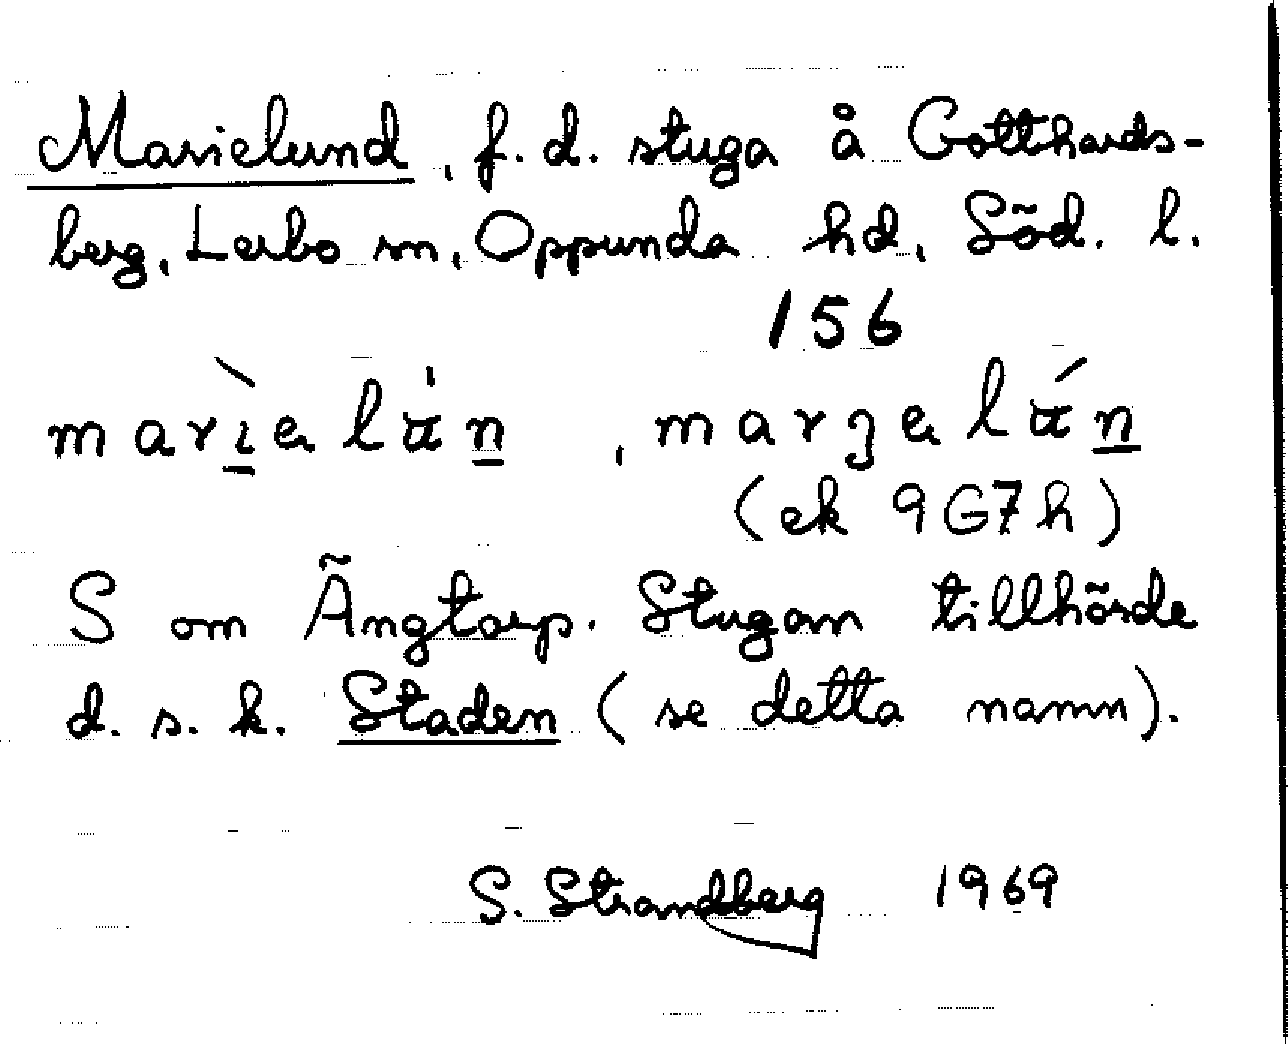 Marielund, f.d. stuga å Gotthards-
berg, Lerbo sn, Oppunda hd, Söd. l.
156
(ek 9G7h)
S om Ängtorp. Stugan tillhörde
d.s.k. Staden (se detta namn).
S. Strandberg 1969